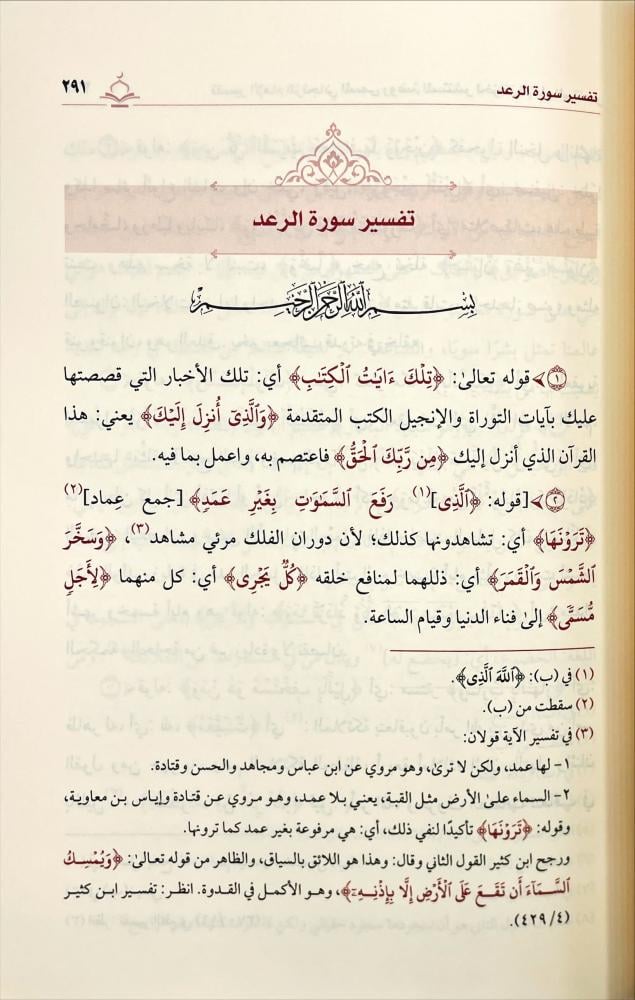 تفسير سورة الرعد
٢٩١
تفسير سورة الرعد
بِسْمِ اللَّهِ الرَّحْمَنِ الرَّحِيمِ
﴿١﴾ قوله تعالىٰ: ﴿تِلْكَ ءَايَٰتُ الْكِتَٰبِ﴾ أي: تلك الأخبار التي قصصتها
عليك بآيات التوراة والإنجيل الكتب المتقدمة ﴿وَالَّذِىٓ أُنزِلَ إِلَيْكَ﴾ يعني: هذا
القرآن الذي أنزل إليك ﴿مِن رَّبِّكَ الْحَقُّ﴾ فاعتصم به، واعمل بما فيه.
﴿٢﴾ [قوله: ﴿الَّذِى](١) رَفَعَ السَّمَٰوَٰتِ بِغَيْرِ عَمَدٍ﴾ [جمع عِماد](٢)
﴿تَرَوْنَهَا﴾ أي: تشاهدونها كذلك؛ لأن دوران الفلك مرئي مشاهد(٣)، ﴿وَسَخَّرَ
الشَّمْسَ وَالْقَمَرَ﴾ أي: ذللهما لمنافع خلقه ﴿كُلٌّ يَجْرِى﴾ أي: كل منهما ﴿لِأَجَلٍ
مُّسَمًّى﴾ إلىٰ فناء الدنيا وقيام الساعة.
(١) في (ب): ﴿اللَّهُ الَّذِى﴾.
(٢) سقطت من (ب).
(٣) في تفسير الآية قولان:
١- لها عمد، ولكن لا ترىٰ، وهو مروي عن ابن عباس ومجاهد والحسن وقتادة.
٢- السماء علىٰ الأرض مثل القبة، يعني بلا عمد، وهو مروي عن قتادة وإياس بن معاوية،
وقوله: ﴿تَرَوْنَهَا﴾ تأكيدًا لنفي ذلك، أي: هي مرفوعة بغير عمد كما ترونها.
ورجح ابن كثير القول الثاني وقال: وهذا هو اللائق بالسياق، والظاهر من قوله تعالىٰ: ﴿وَيُمْسِكُ
السَّمَآءَ أَن تَقَعَ عَلَى الْأَرْضِ إِلَّا بِإِذْنِهِۦٓ﴾، وهو الأكمل في القدوة. انظر: تفسير ابن كثير
(٤/ ٤٢٩).